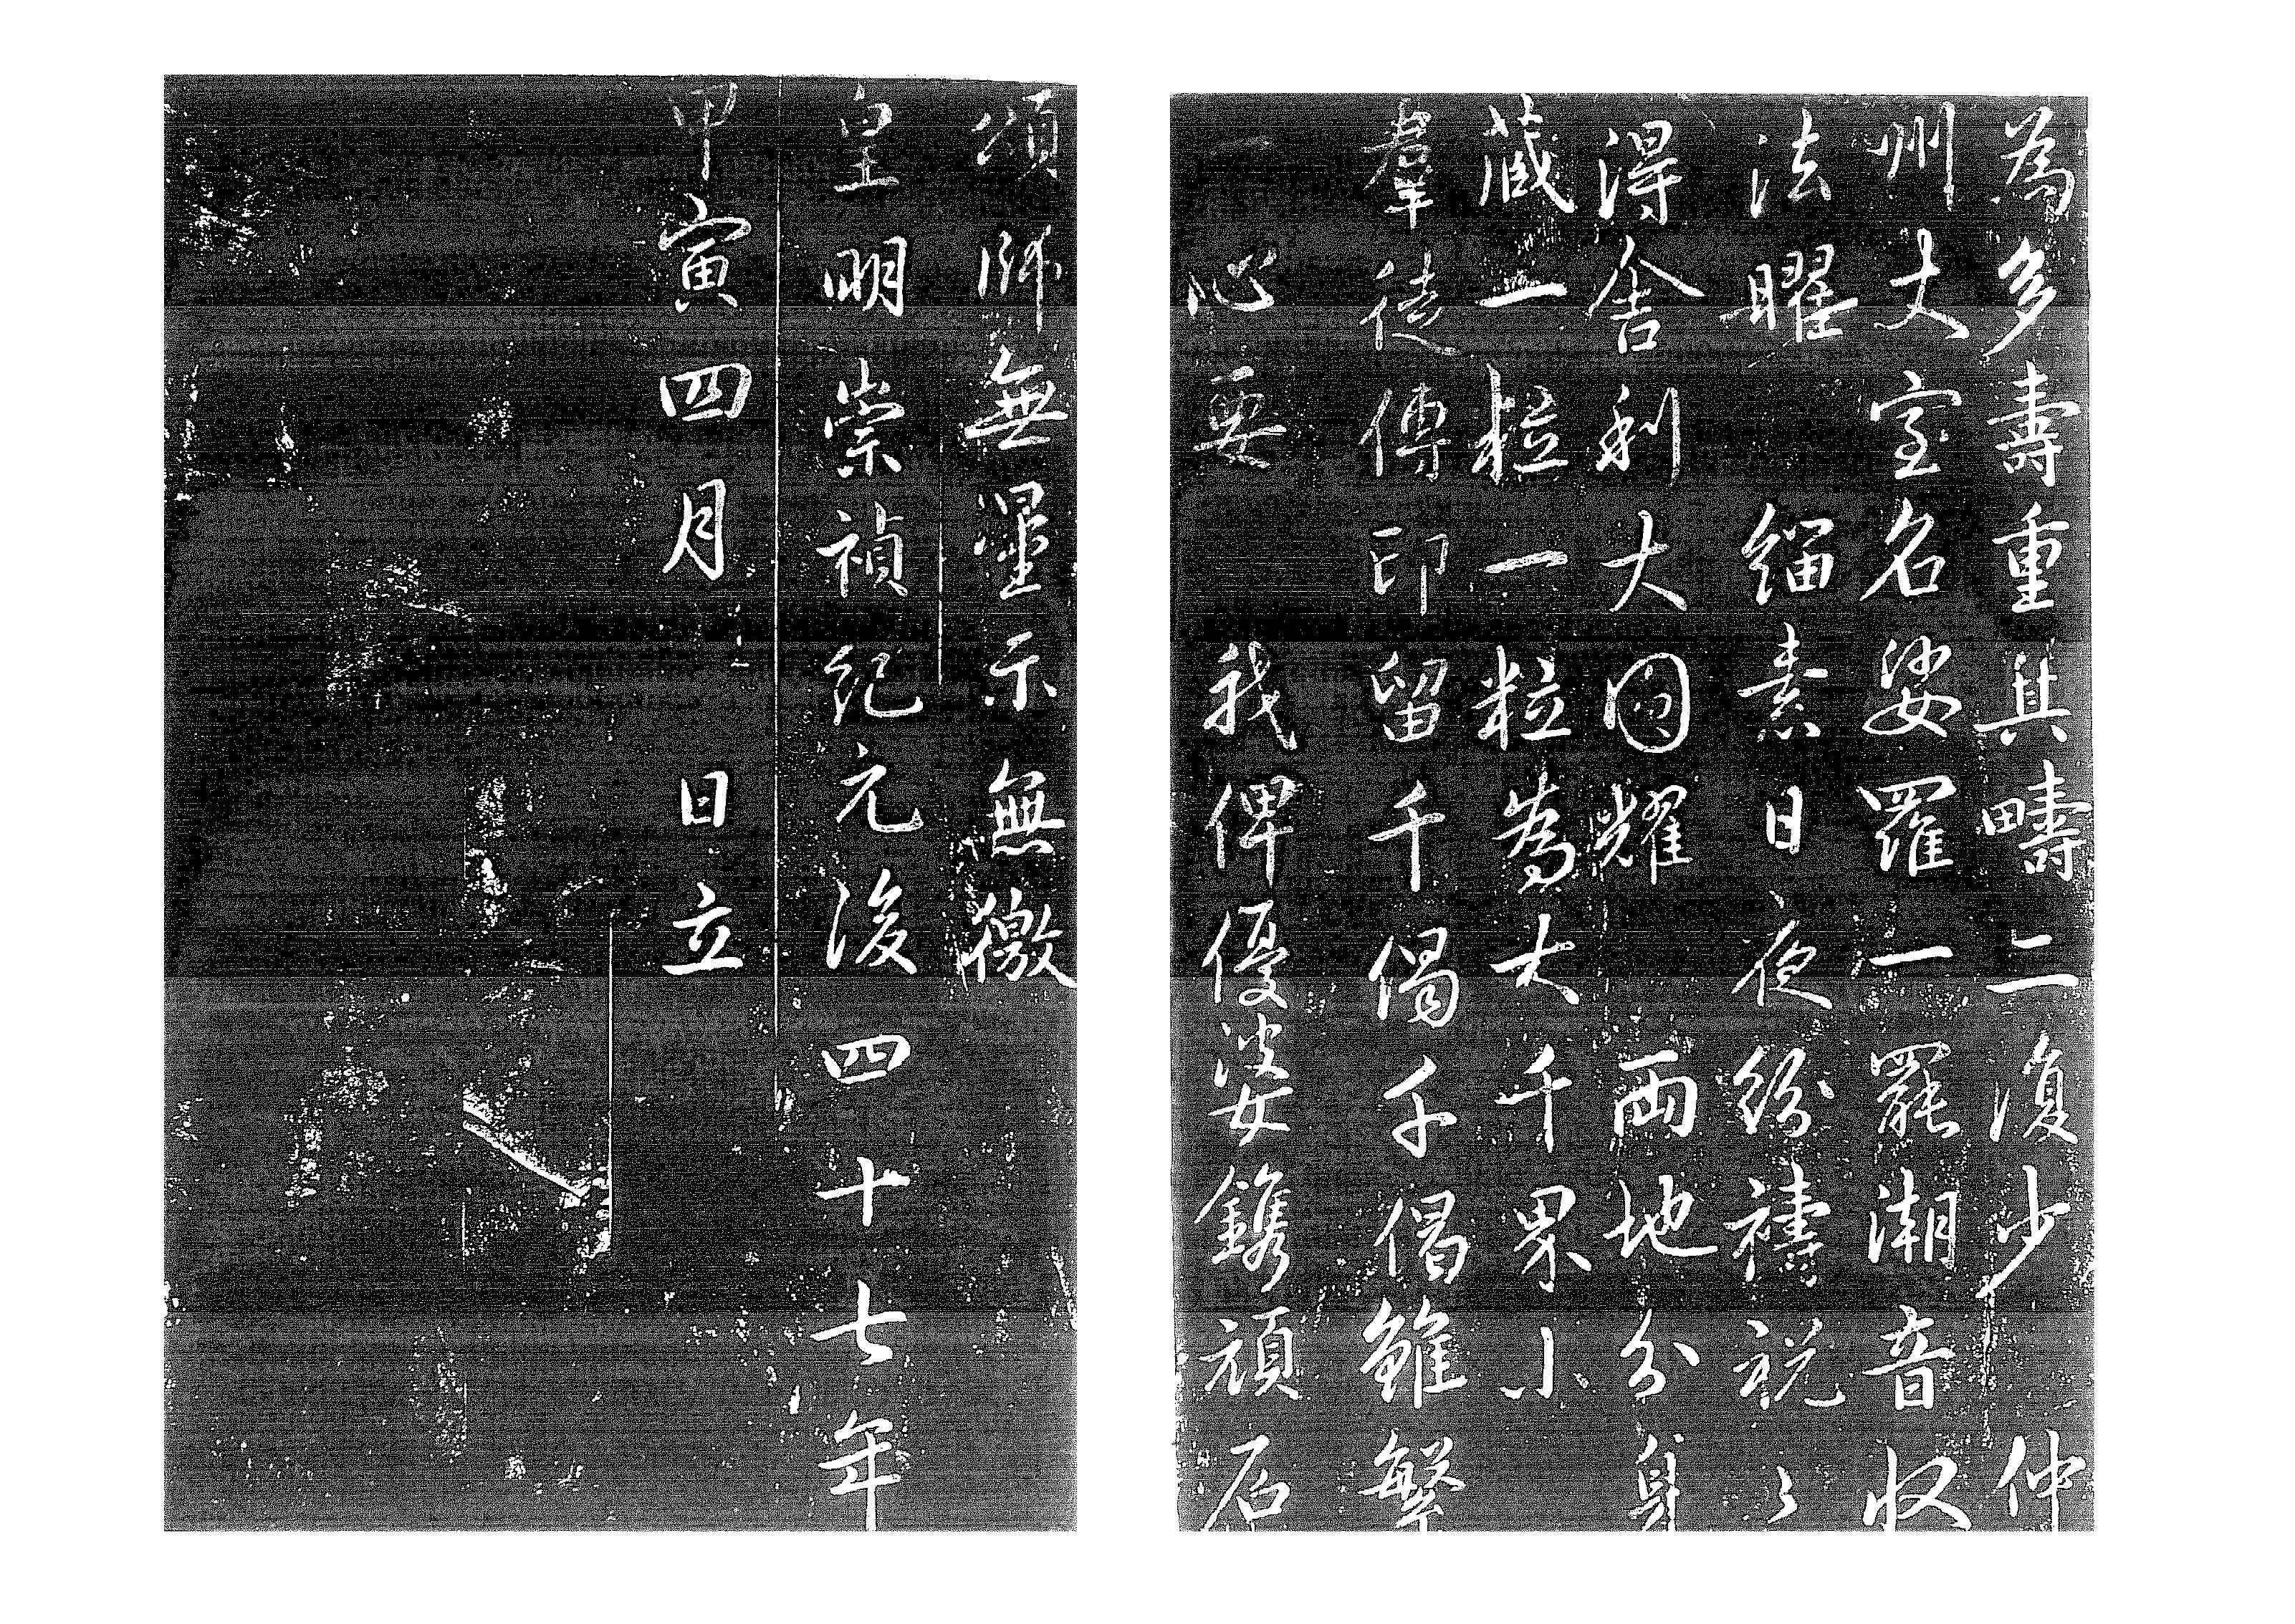 為多壽重其疇二復少仲
州丈室名娑羅一罷潮音收
法曜緇素日夜紛禱祝〻
得舍利大圓耀兩地分身
藏一粒一粒為大千界小
羣徒傳印留千偈千偈雖繁
一心要我俾優婆鐫頑石
頌師無溼示無徼
皇明崇禎紀元後四十七年
甲寅四月日立